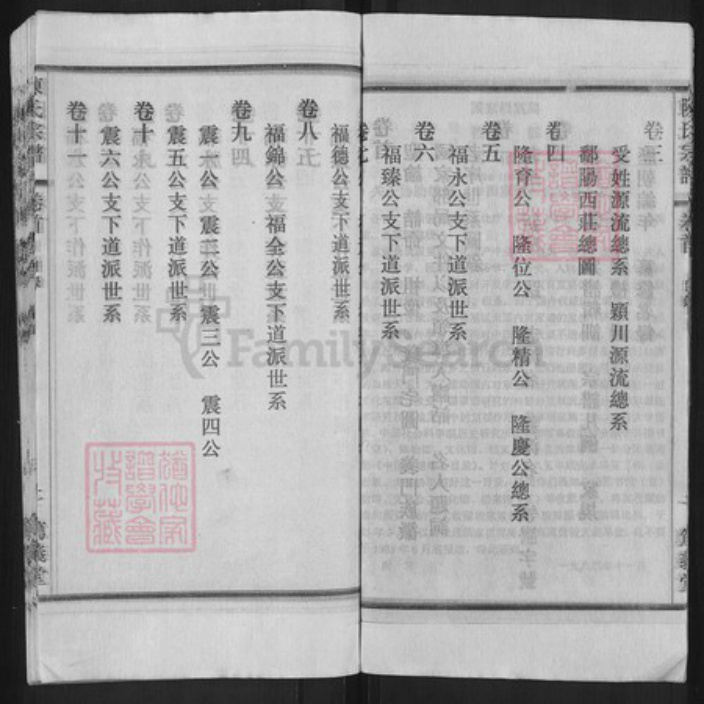 卷三
受姓源流總系 潁川源流總系
鄱陽西莊總圖
卷四
隆育公 隆位公 隆精公 隆慶公總系
卷五
福永公支下道派世系
卷六
福臻公支下道派世系
卷七
福德公支下道派世系
卷八
福錦公 福全公支下道派世系
卷九
震二公 震三公 震四公
震五公支下道派世系
卷十
震六公支下道派世系
卷十一
陳氏宗譜 卷首
義堂
FamilySearch